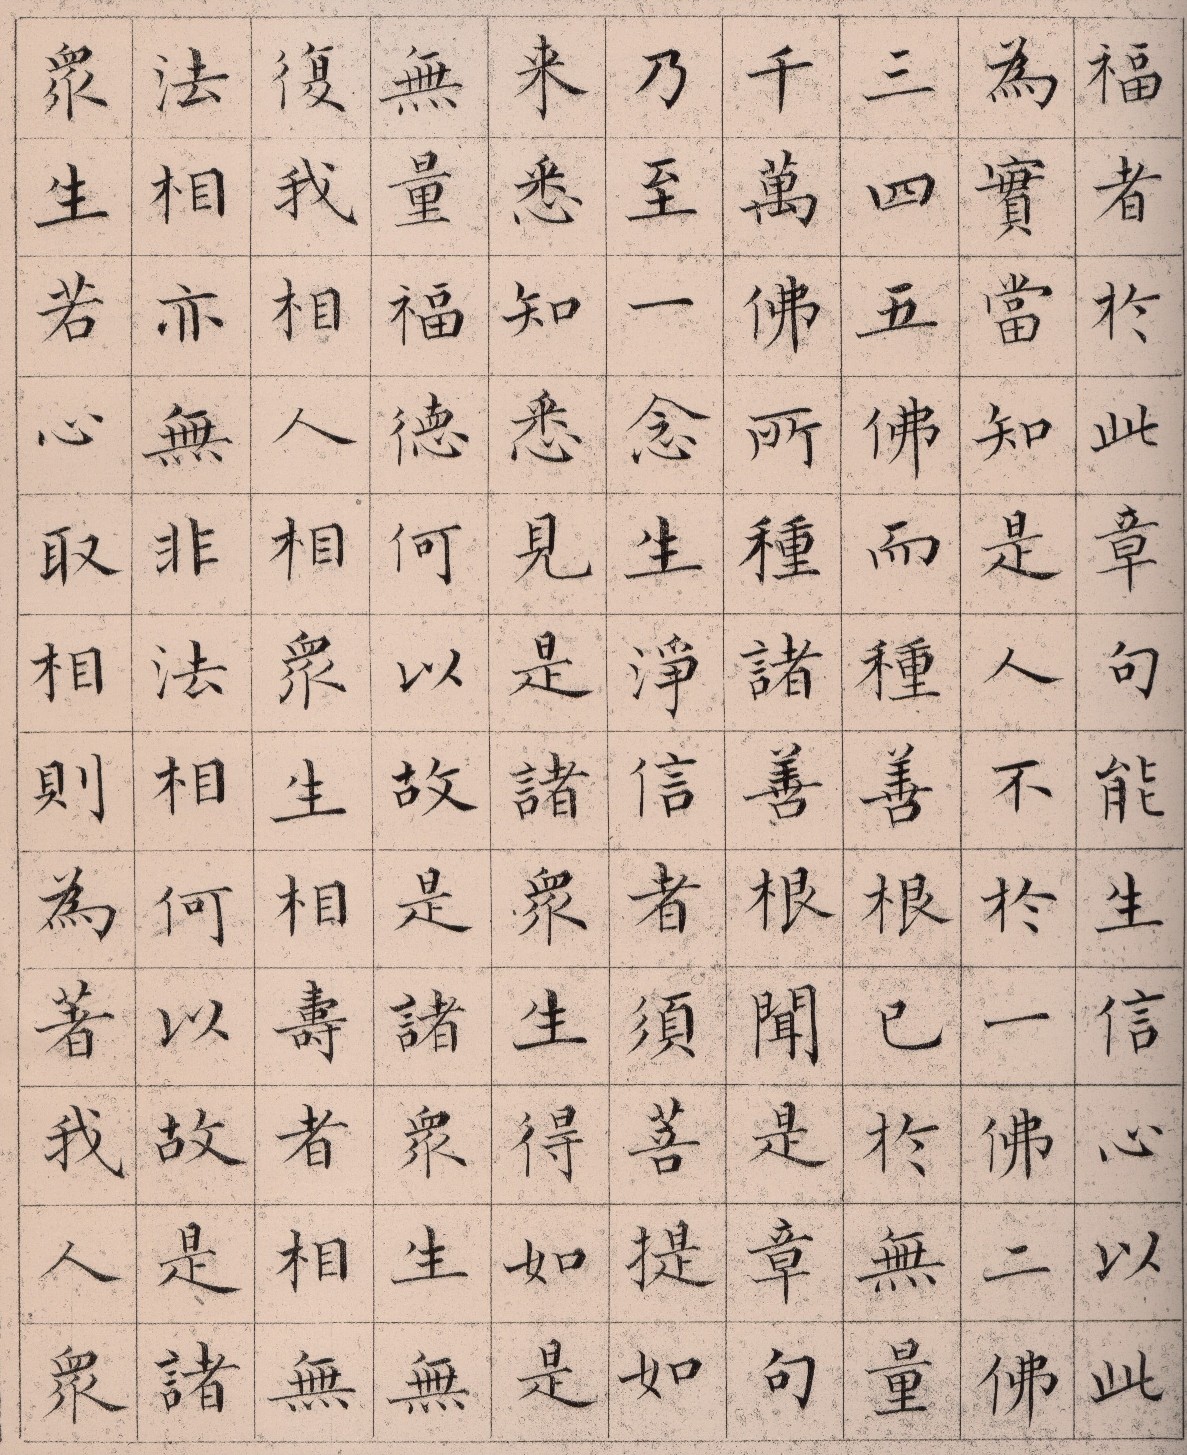 福者於此章句能生信心以此
為實當知是人不於一佛二佛
三四五佛而種善根已於無量
千萬佛所種諸善根聞是章句
乃至一念生淨信者須菩提如
来悉知悉見是諸眾生得如是
無量福德何以故是諸眾生無
復我相人相眾生相壽者相無
法相亦無非法相何以故是諸
眾生若心取相則為著我人眾